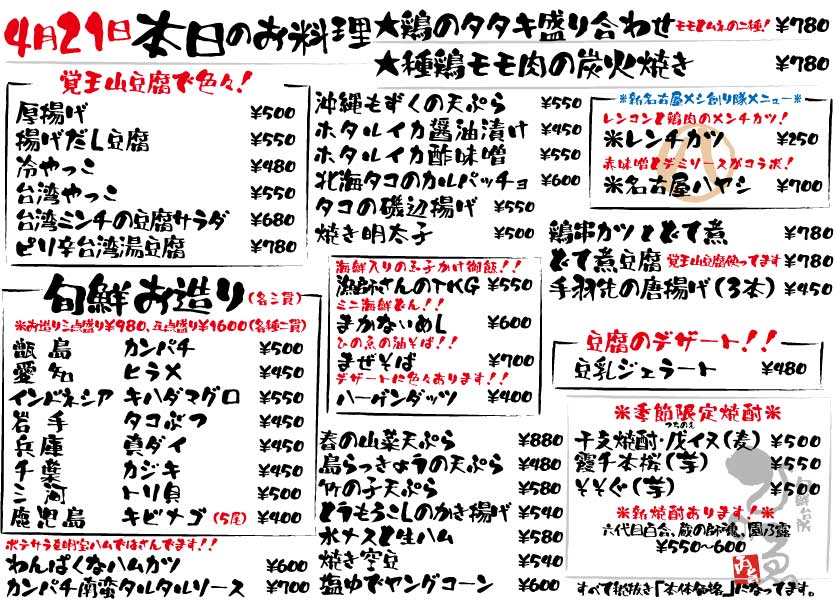 4月21日 本日のお料理
★鶏のタタキ盛り合わせ モモとムネの二種! ¥780
★種鶏モモ肉の炭火焼き ¥780
覚王山豆腐で色々!
厚揚げ ¥500
揚げだし豆腐 ¥550
冷やっこ ¥480
台湾やっこ ¥550
台湾ミンチの豆腐サラダ ¥680
ピリ辛台湾湯豆腐 ¥780
旬鮮お造り(各三貫)
※お造り三点盛り¥980、五点盛り¥1600(各種二貫)
甑島 カンパチ ¥500
愛知 ヒラメ ¥450
インドネシア キハダマグロ ¥550
岩手 タコぶつ ¥450
兵庫 真ダイ ¥450
千葉 カジキ ¥450
三河 トリ貝 ¥500
鹿児島 キビナゴ(5尾) ¥400
ポテサラを明宝ハムではさんでます!!
わんぱくなハムカツ ¥600
カンパチ南蛮タルタルソース ¥700
沖縄もずくの天ぷら ¥550
ホタルイカ醤油漬け ¥450
ホタルイカ酢味噌 ¥550
北海タコのカルパッチョ ¥600
タコの磯辺揚げ ¥550
焼き明太子 ¥500
海鮮入りの玉子かけ御飯!!
漁師さんのTKG ¥550
ミニ海鮮どん!!
まかないめし ¥600
ひの魚の油そば!!
まぜそば ¥700
デザートに色々あります!!
ハーゲンダッツ ¥400
春の山菜天ぷら ¥880
島らっきょうの天ぷら ¥480
竹の子天ぷら ¥580
とうもろこしのかき揚げ ¥540
水ナスと生ハム ¥580
焼き空豆 ¥540
塩ゆでヤングコーン ¥600
※新名古屋メシ創り隊メニュー※
レンコンと鶏肉のメンチカツ!
※レンチカツ ¥250
赤味噌とデミソースがコラボ!
※名古屋ハヤシ ¥700
鶏串カツとどて煮 ¥780
どて煮豆腐 覚王山豆腐使ってます ¥780
手羽先の唐揚げ(3本) ¥450
豆腐のデザート!!
豆乳ジェラート ¥480
※季節限定焼酎※
つちのえ
干支焼酎・戊イヌ(麦) ¥500
霞千本桜(芋) ¥550
そそぐ(芋) ¥500
※新焼酎あります!※
六代目百合、蔵の師魂、園乃露
¥550~600
旬鮮台所
すべて税抜き「本体価格」になってます。